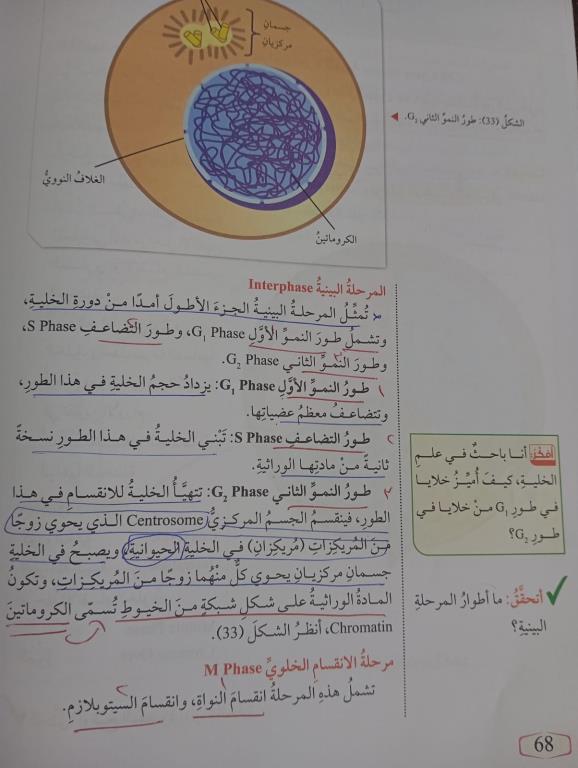 جسمانِ
مركزيانِ
الشكلُ (33): طورُ النموِّ الثاني G₂.
الغلافُ النوويُّ
الكروماتينُ
المرحلةُ البينيةُ Interphase
تُمثِّلُ المرحلةُ البينيةُ الجزءَ الأطولَ أمدًا منْ دورةِ الخليةِ،
وتشملُ طورَ النموِّ الأوَّلِ G₁ Phase، وطورَ التضاعفِ S Phase،
وطورَ النموِّ الثاني G₂ Phase.
1 طورُ النموِّ الأوَّلِ G₁ Phase: يزدادُ حجمُ الخليةِ في هذا الطورِ،
وتتضاعفُ معظمُ عضياتِها.
2 طورُ التضاعفِ S Phase: تَبْني الخليةُ في هذا الطورِ نسخةً
ثانيةً منْ مادتِها الوراثيةِ.
3 طورُ النموِّ الثاني G₂ Phase: تتهيَّأُ الخليةُ للانقسامِ في هذا
الطورِ، فينقسمُ الجسمُ المركزيُّ Centrosome الذي يحوي زوجًا
منَ المُريكِزاتِ (مُريكِزانِ) في الخليةِ الحيوانيةِ، ويصبحُ في الخليةِ
جسمانِ مركزيانِ يحوي كلٌّ منْهُما زوجًا منَ المُريكِزاتِ، وتكونُ
المادةُ الوراثيةُ على شكلِ شبكةٍ منَ الخيوطِ تُسمّى الكروماتينَ
Chromatin، أنظرُ الشكلَ (33).
مرحلةُ الانقسامِ الخلويِّ M Phase
تشملُ هذهِ المرحلةُ انقسامَ النواةِ، وانقسامَ السيتوبلازمِ.
أفكِّرُ أنا باحثٌ في علمِ
الخليةِ، كيفَ أُميِّزُ خلايا
في طورِ G₁ منْ خلايا في
طورِ G₂؟
أتحقَّقُ: ما أطوارُ المرحلةِ
البينيةِ؟
68